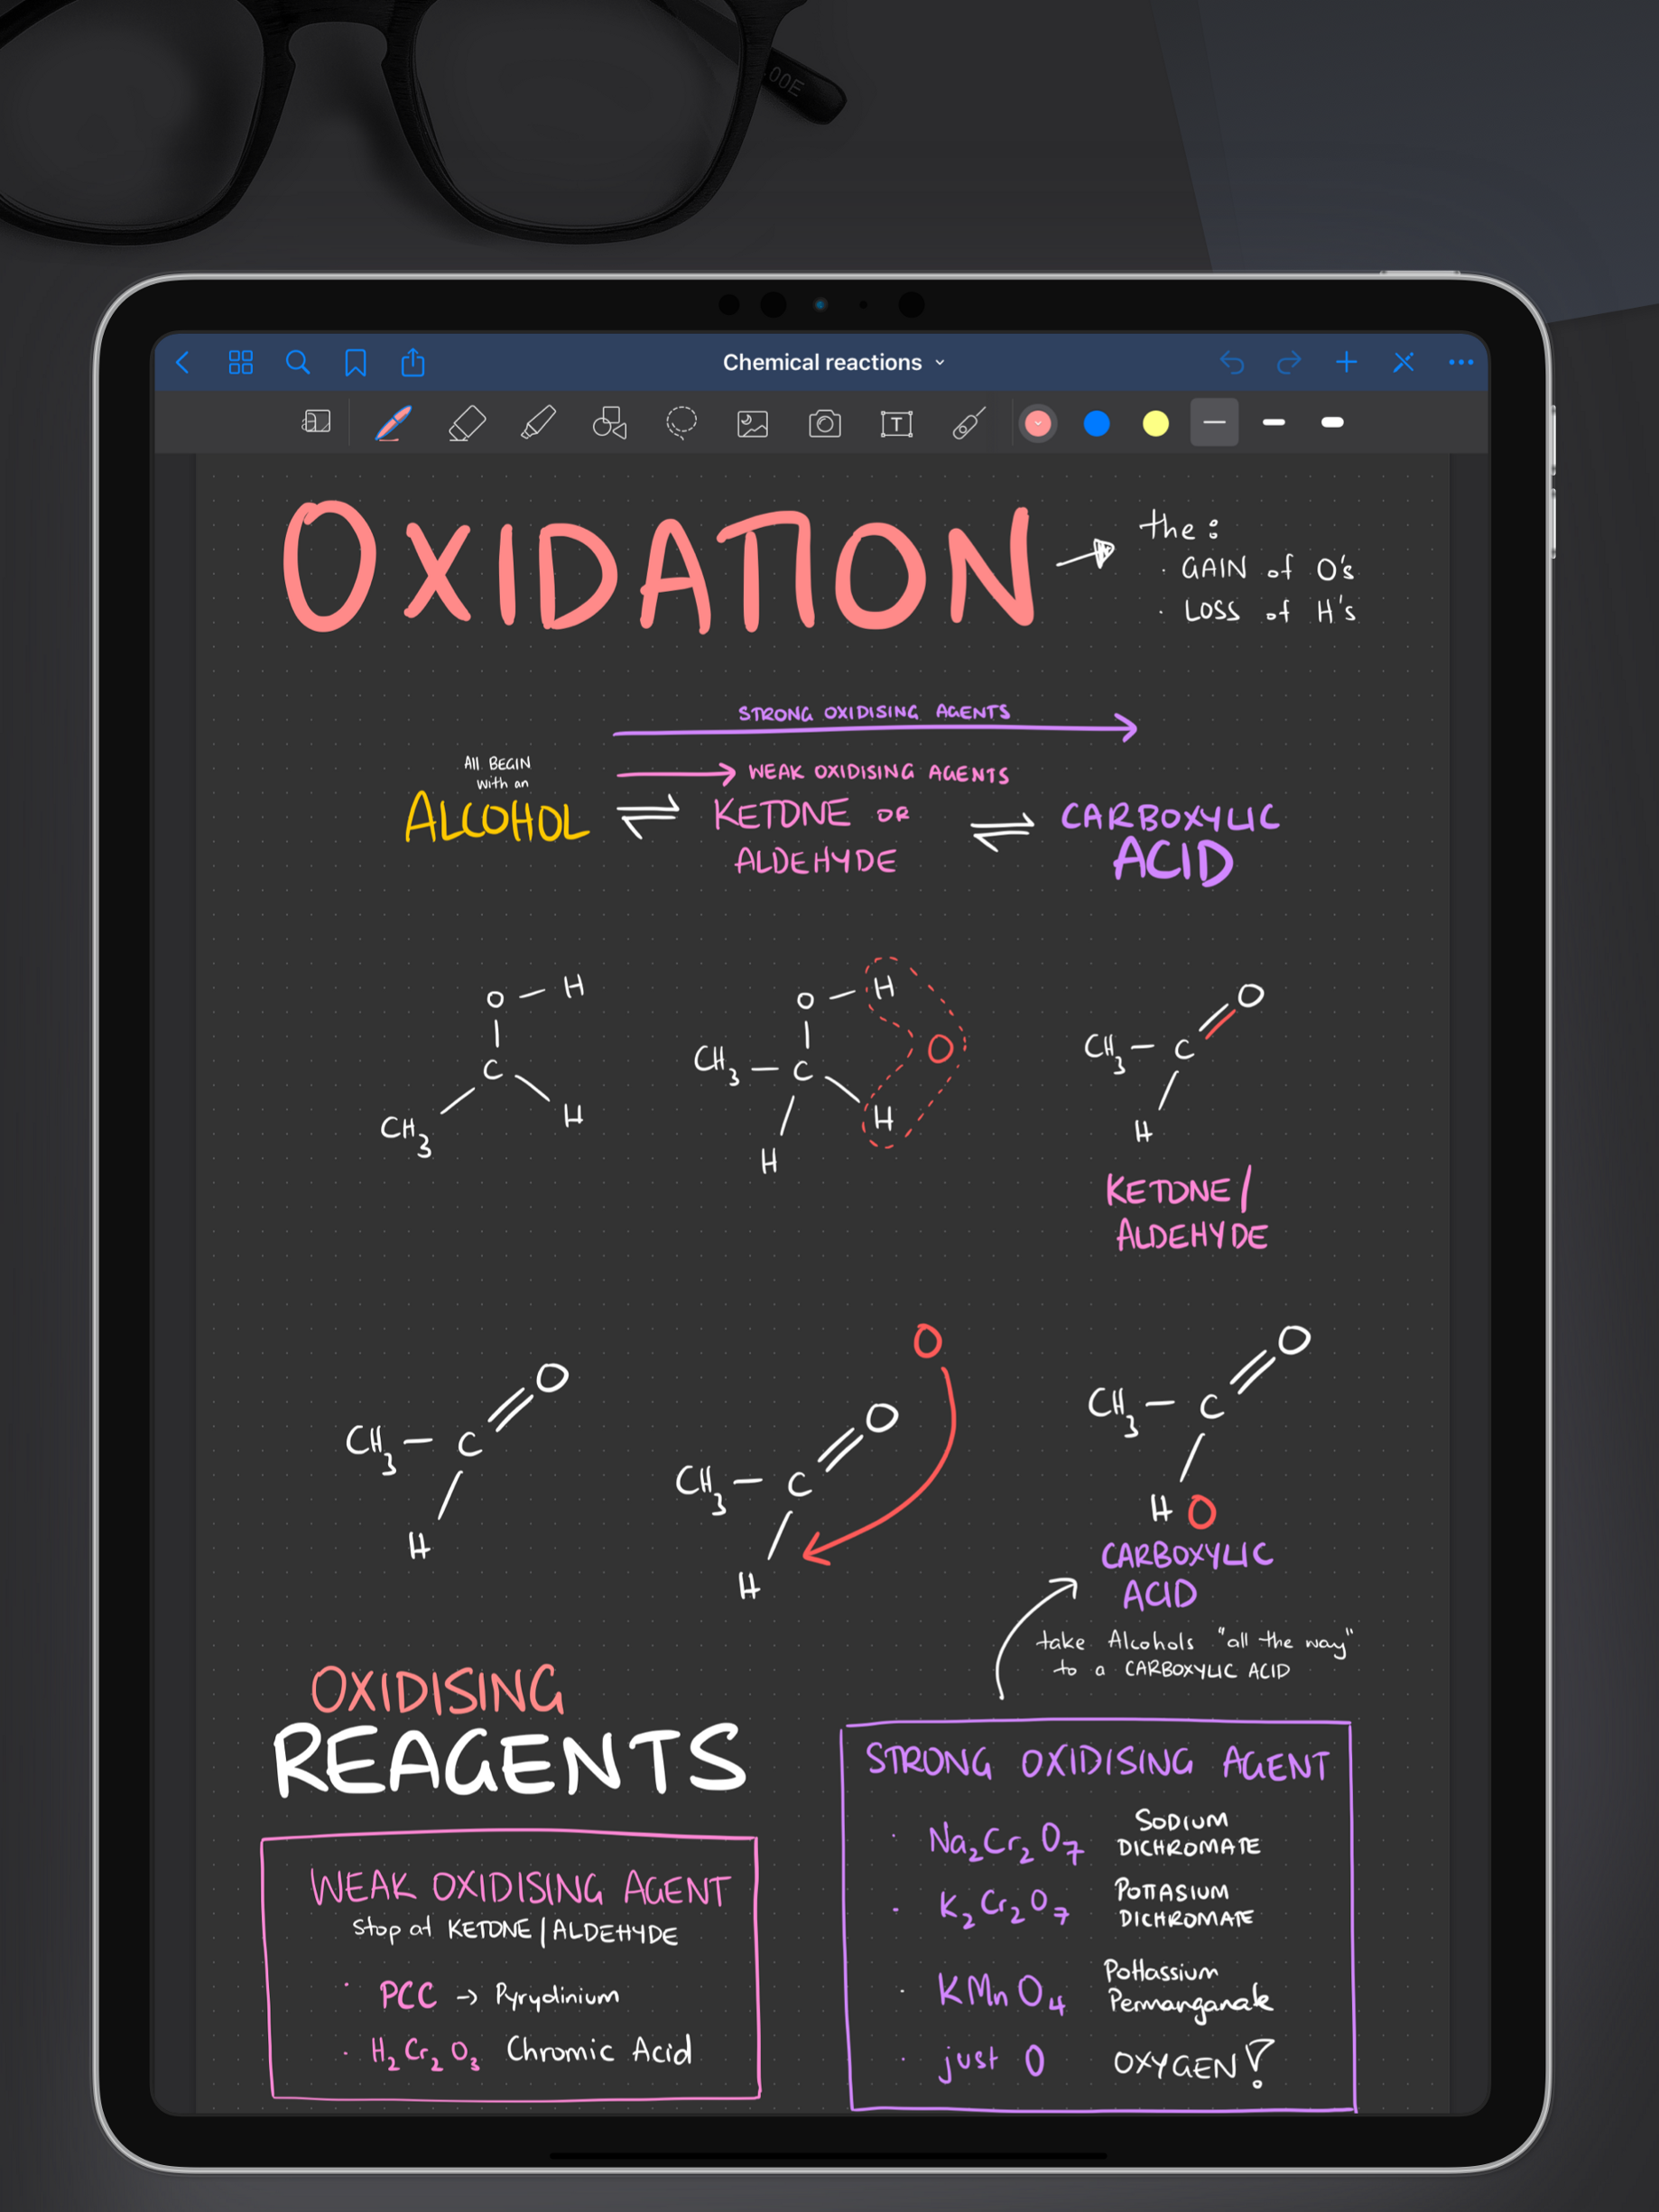 .00E
Chemical reactions
T
OXIDATION → the:
· GAIN of O's
· LOSS of H's
STRONG OXIDISING AGENTS
All BEGIN
with an
→ WEAK OXIDISING AGENTS
ALCOHOL ⇌ KETONE OR
ALDEHYDE
⇌ CARBOXYLIC
ACID
O - H
C
CH3
H
O - H
O
CH3 - C
H
H
O
CH3 - C
H
KETONE/
ALDEHYDE
O
CH3 - C
H
O
O
CH3 - C
H
O
CH3 - C
H O
CARBOXYLIC
ACID
take Alcohols "all the way"
to a CARBOXYLIC ACID
OXIDISING
REAGENTS
WEAK OXIDISING AGENT
Stop at KETONE/ALDEHYDE
· PCC → Pyrydinium
· H2Cr2O3 Chromic Acid
STRONG OXIDISING AGENT
· Na2Cr2O7 SODIUM
DICHROMATE
· K2Cr2O7 POTTASIUM
DICHROMATE
· KMnO4 Pottassium
Permanganate
· just O OXYGEN!